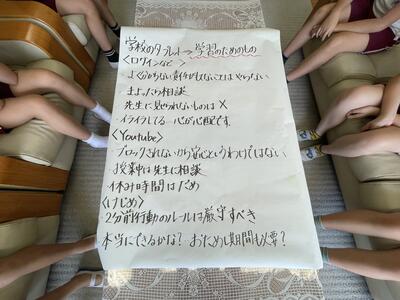 学校のタブレット→学習のためのもの
〈ログインなど〉
よく分からない 責任がもてないことはやらない
まよったら相談
先生に見せられないものは×
イライラしてる 心が心配です
〈Youtube〉
ブロックされないから安心というわけではない
授業中は先生に相談
休み時間はだめ
〈けじめ〉
2分前行動のルールは厳守すべき
本当にできるかな？おためし期間も必要？